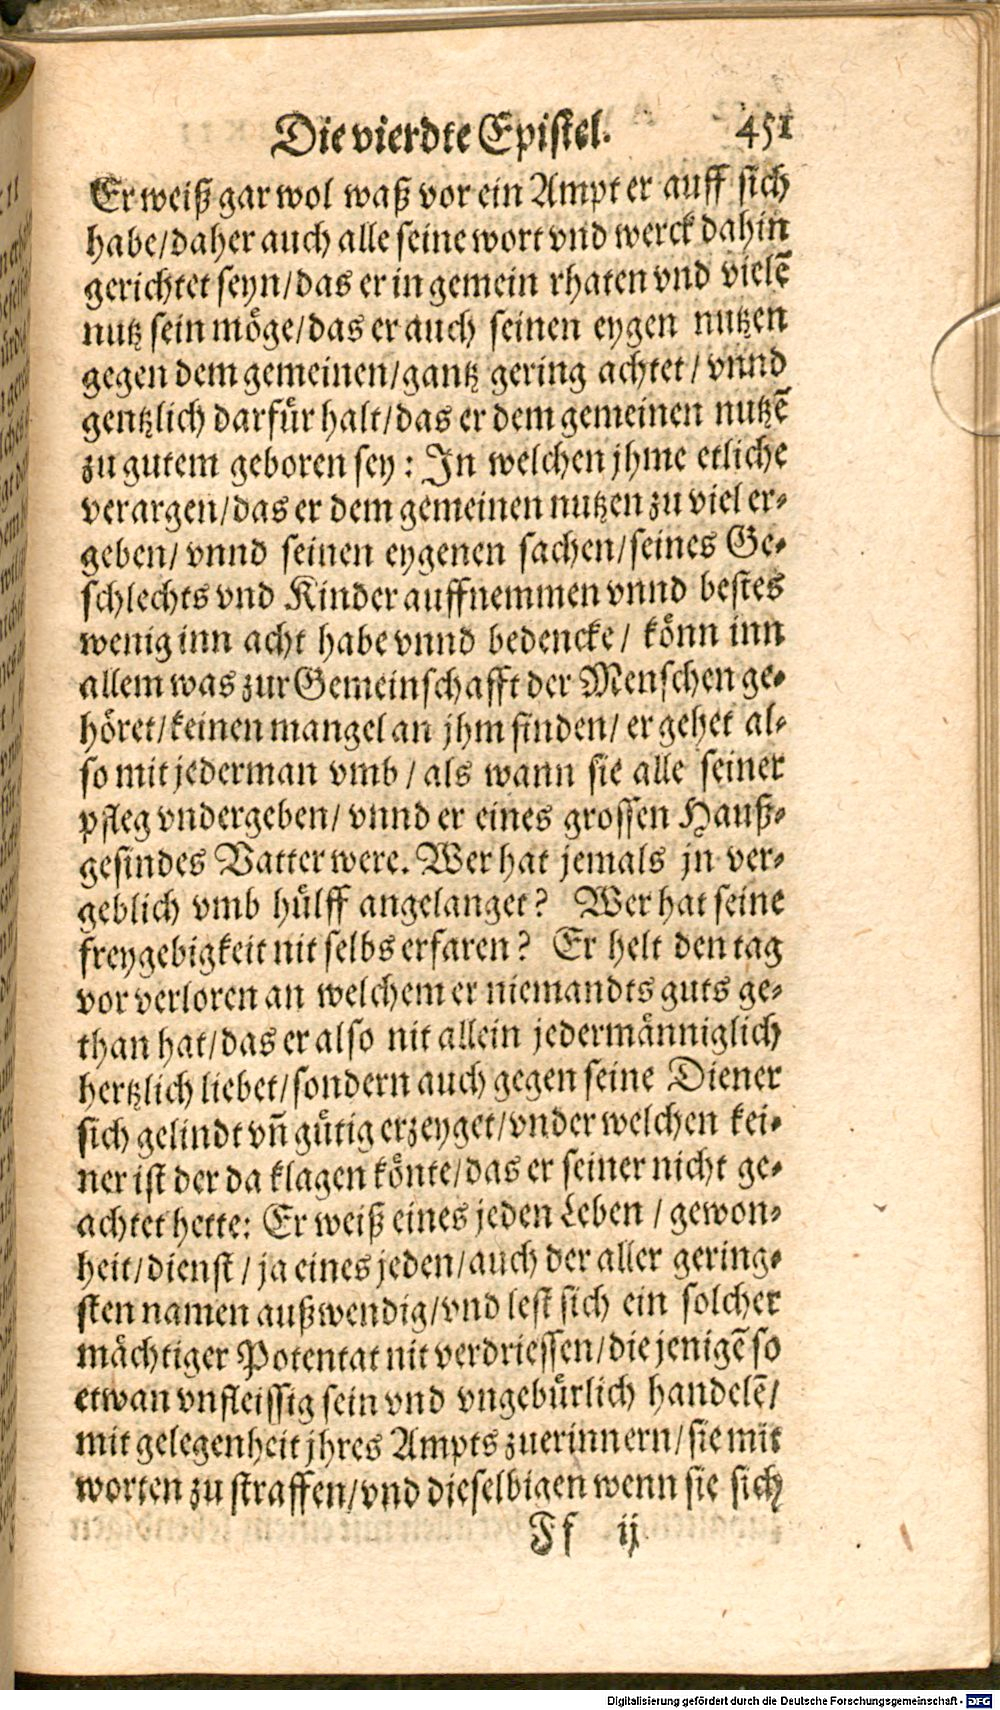 Die vierdte Epistel. 451
Er weiß gar wol waß vor ein Ampt er auff sich
habe/daher auch alle seine wort vnd werck dahin
gerichtet seyn/das er in gemein rhaten vnd vielē
nutz sein möge/das er auch seinen eygen nutzen
gegen dem gemeinen/gantz gering achtet/ vnnd
gentzlich darfür halt/das er dem gemeinen nutzē
zu gutem geboren sey: In welchen jhme etliche
verargen/das er dem gemeinen nutzen zu viel er-
geben/ vnnd seinen eygenen sachen/seines Ge-
schlechts vnd Kinder auffnemmen vnnd bestes
wenig inn acht habe vnnd bedencke/ könn inn
allem was zur Gemeinschafft der Menschen ge-
höret/keinen mangel an jhm finden/ er gehet al-
so mit jederman vmb / als wann sie alle seiner
pfleg vndergeben/ vnnd er eines grossen Hauß-
gesindes Vatter were. Wer hat jemals jn ver-
geblich vmb hülff angelanget? Wer hat seine
freygebigkeit nit selbs erfaren? Er helt den tag
vor verloren an welchem er niemandts guts ge-
than hat/das er also nit allein jedermänniglich
hertzlich liebet/sondern auch gegen seine Diener
sich gelindt vñ gütig erzeyget/vnder welchen kei-
ner ist der da klagen könte/das er seiner nicht ge-
achtet hette: Er weiß eines jeden Leben / gewon-
heit/dienst / ja eines jeden/auch der aller gering-
sten namen außwendig/vnd lest sich ein solcher
mächtiger Potentat nit verdriessen/die jenigē so
etwan vnfleissig sein vnd vngebürlich handelē/
mit gelegenheit jhres Ampts zuerinnern/sie mit
worten zu straffen/vnd dieselbigen wenn sie sich
Ff ij
Digitalisierung gefördert durch die Deutsche Forschungsgemeinschaft - DFG